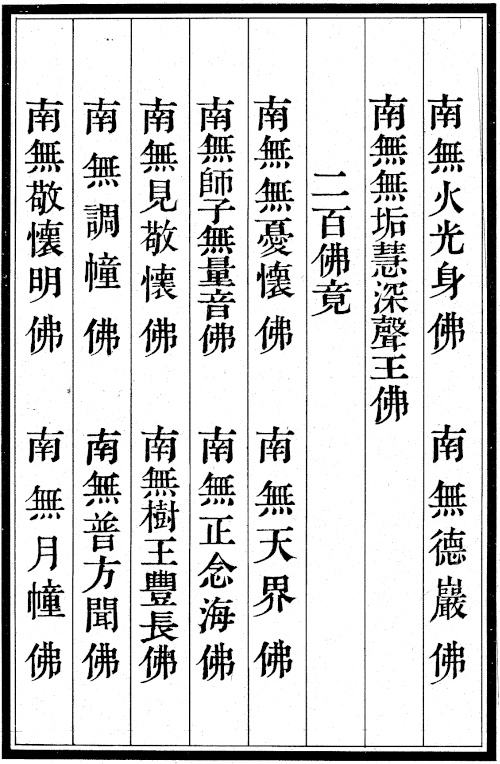 南無火光身佛　南無德巖佛
南無無垢慧深聲王佛
二百佛竟
南無無憂懷佛　南無天界佛
南無師子無量音佛　南無正念海佛
南無見敬懷佛　南無樹王豐長佛
南無調幢佛　南無普方聞佛
南無敬懷明佛　南無月幢佛